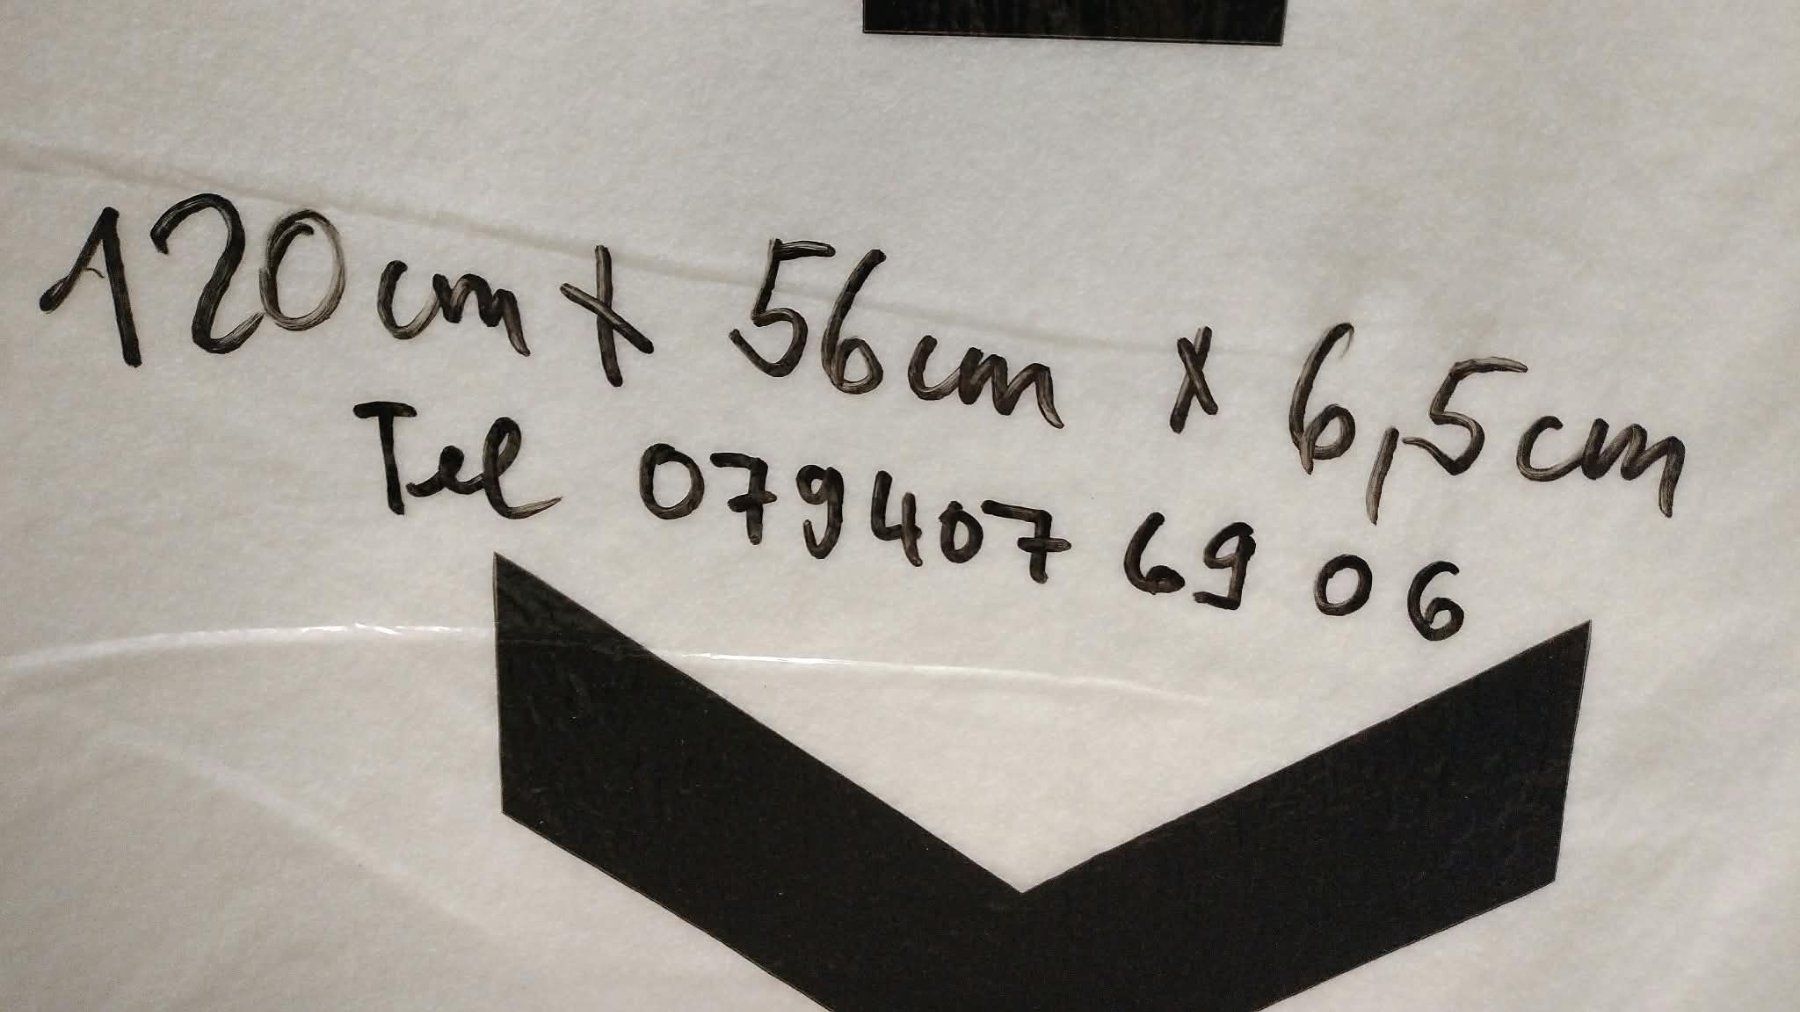 120cm x 56cm x 6,5cm
Tel 079407 69 06